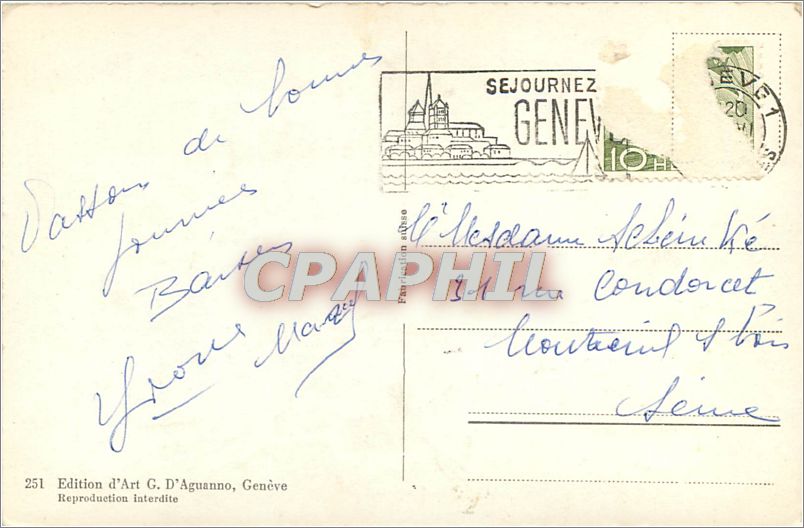 Passons de bonnes
journées
Baisers
Yvonne Marcel
SEJOURNEZ
GENEV
EVE 1
20
10 H
Fabrication suisse
CPAPHIL
Mesdame Schéinké
31 rue Condorcet
Montreuil s bois
Seine
251 Edition d'Art G. D'Aguanno, Genève
Reproduction interdite